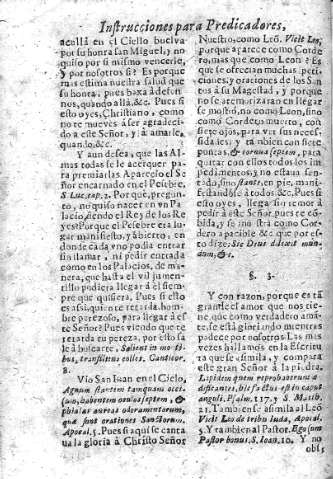 Instrucciones para Predicadores,
acullà en el Cielo buelva
por su honra san Miguel, y no
quiso por si mismo vencerle,
y por nosotros si? Es porque
mas estima nuestra salud que
su honra, pues baxa à defen
nos, quando allà &c. Pues si
esto oyes, Christiano, como
no te mueves à ser agradeci-
do à este Señor, y à amarle,
quando &c.
Y aun desea, que las Al-
mas todas se le acerquen pa-
ra premiarlas Aparecio el Se
ñor encarnado en el Pesebre,
S. Luc. cap. 2. Por què, pregun-
to, no quiso nacer en un Pa-
lacio, siendo el Rey de los Re
yes? Porque el Pesebre era lu-
gar manifiesto, y abierto, en
donde cada uno podia entrar
sin llamar, ni pedir entrada
como en los Palacios, de ma-
nera, que hasta el vil jumen-
tillo pudiera llegar à èl siem-
pre que quisiera. Pues si esto
es assi, quien te retarda, hom-
bre perezoso, para llegar à es
te Señor? Pues viendo que te
retarda tu pereza, por esso se
và à buscarte. Salient in mo-
tibus, transiliens colles. Canticor.
8.
Viò San Juan en el Cielo,
Agnum stantem tanquam occi-
sum, habentem oculos septem, &
phialas aureas odoramentorum,
quæ sunt orationes Sanctorum.
Apocal. 5. Pues si aqui se canta
va la gloria à Christo Señor
Nuestro, como Leō. Vicit Leo,
por què aparece como Corde
ro, mas que como Leon? Es
que se ofrecian muchas peti-
ciones, y oraciones de los San
tos à su Magestad, y porque
no se atemorizaran en llegar
se mostrò, no como Leon, sino
como Cordero muerto, con
siete ojos, para ver sus neces-
sidades; y tambien con siete
& cornua septem, para
quitar con ellos todos los im
pedimentos, y no estava sen-
tado, sino stantem, en pie, mani-
festandose à todos &c. Pues si
esto oyes, llega sin temor à
pedir à este Señor, pues te cō-
bida, y se mostrò como Cor
dero apacible &c. que por es-
to dize: Sic Deus dilexit mun-
dum, &c.
§. 3.
Y con razon, porque es tā
grande el amor que nos tie-
ne, que como verdadero amā-
te, se està gloriando mientras
padece por nosotros. Las mas
vezes hallamos en la Escritu
ra que se assimila, y compara
este gran Señor à la piedra.
Lapidem quem reprobaverunt
ædificantes, hic factus est in caput
anguli. Psalm. 117. y S. Matth.
21. Tambien se assimila al Leō
Vicit Leo de tribu Iuda, Apocal.
5. Y tambien al Pastor. Ego sum
Pastor bonus. S. Ioan. 10. Y no
obs-